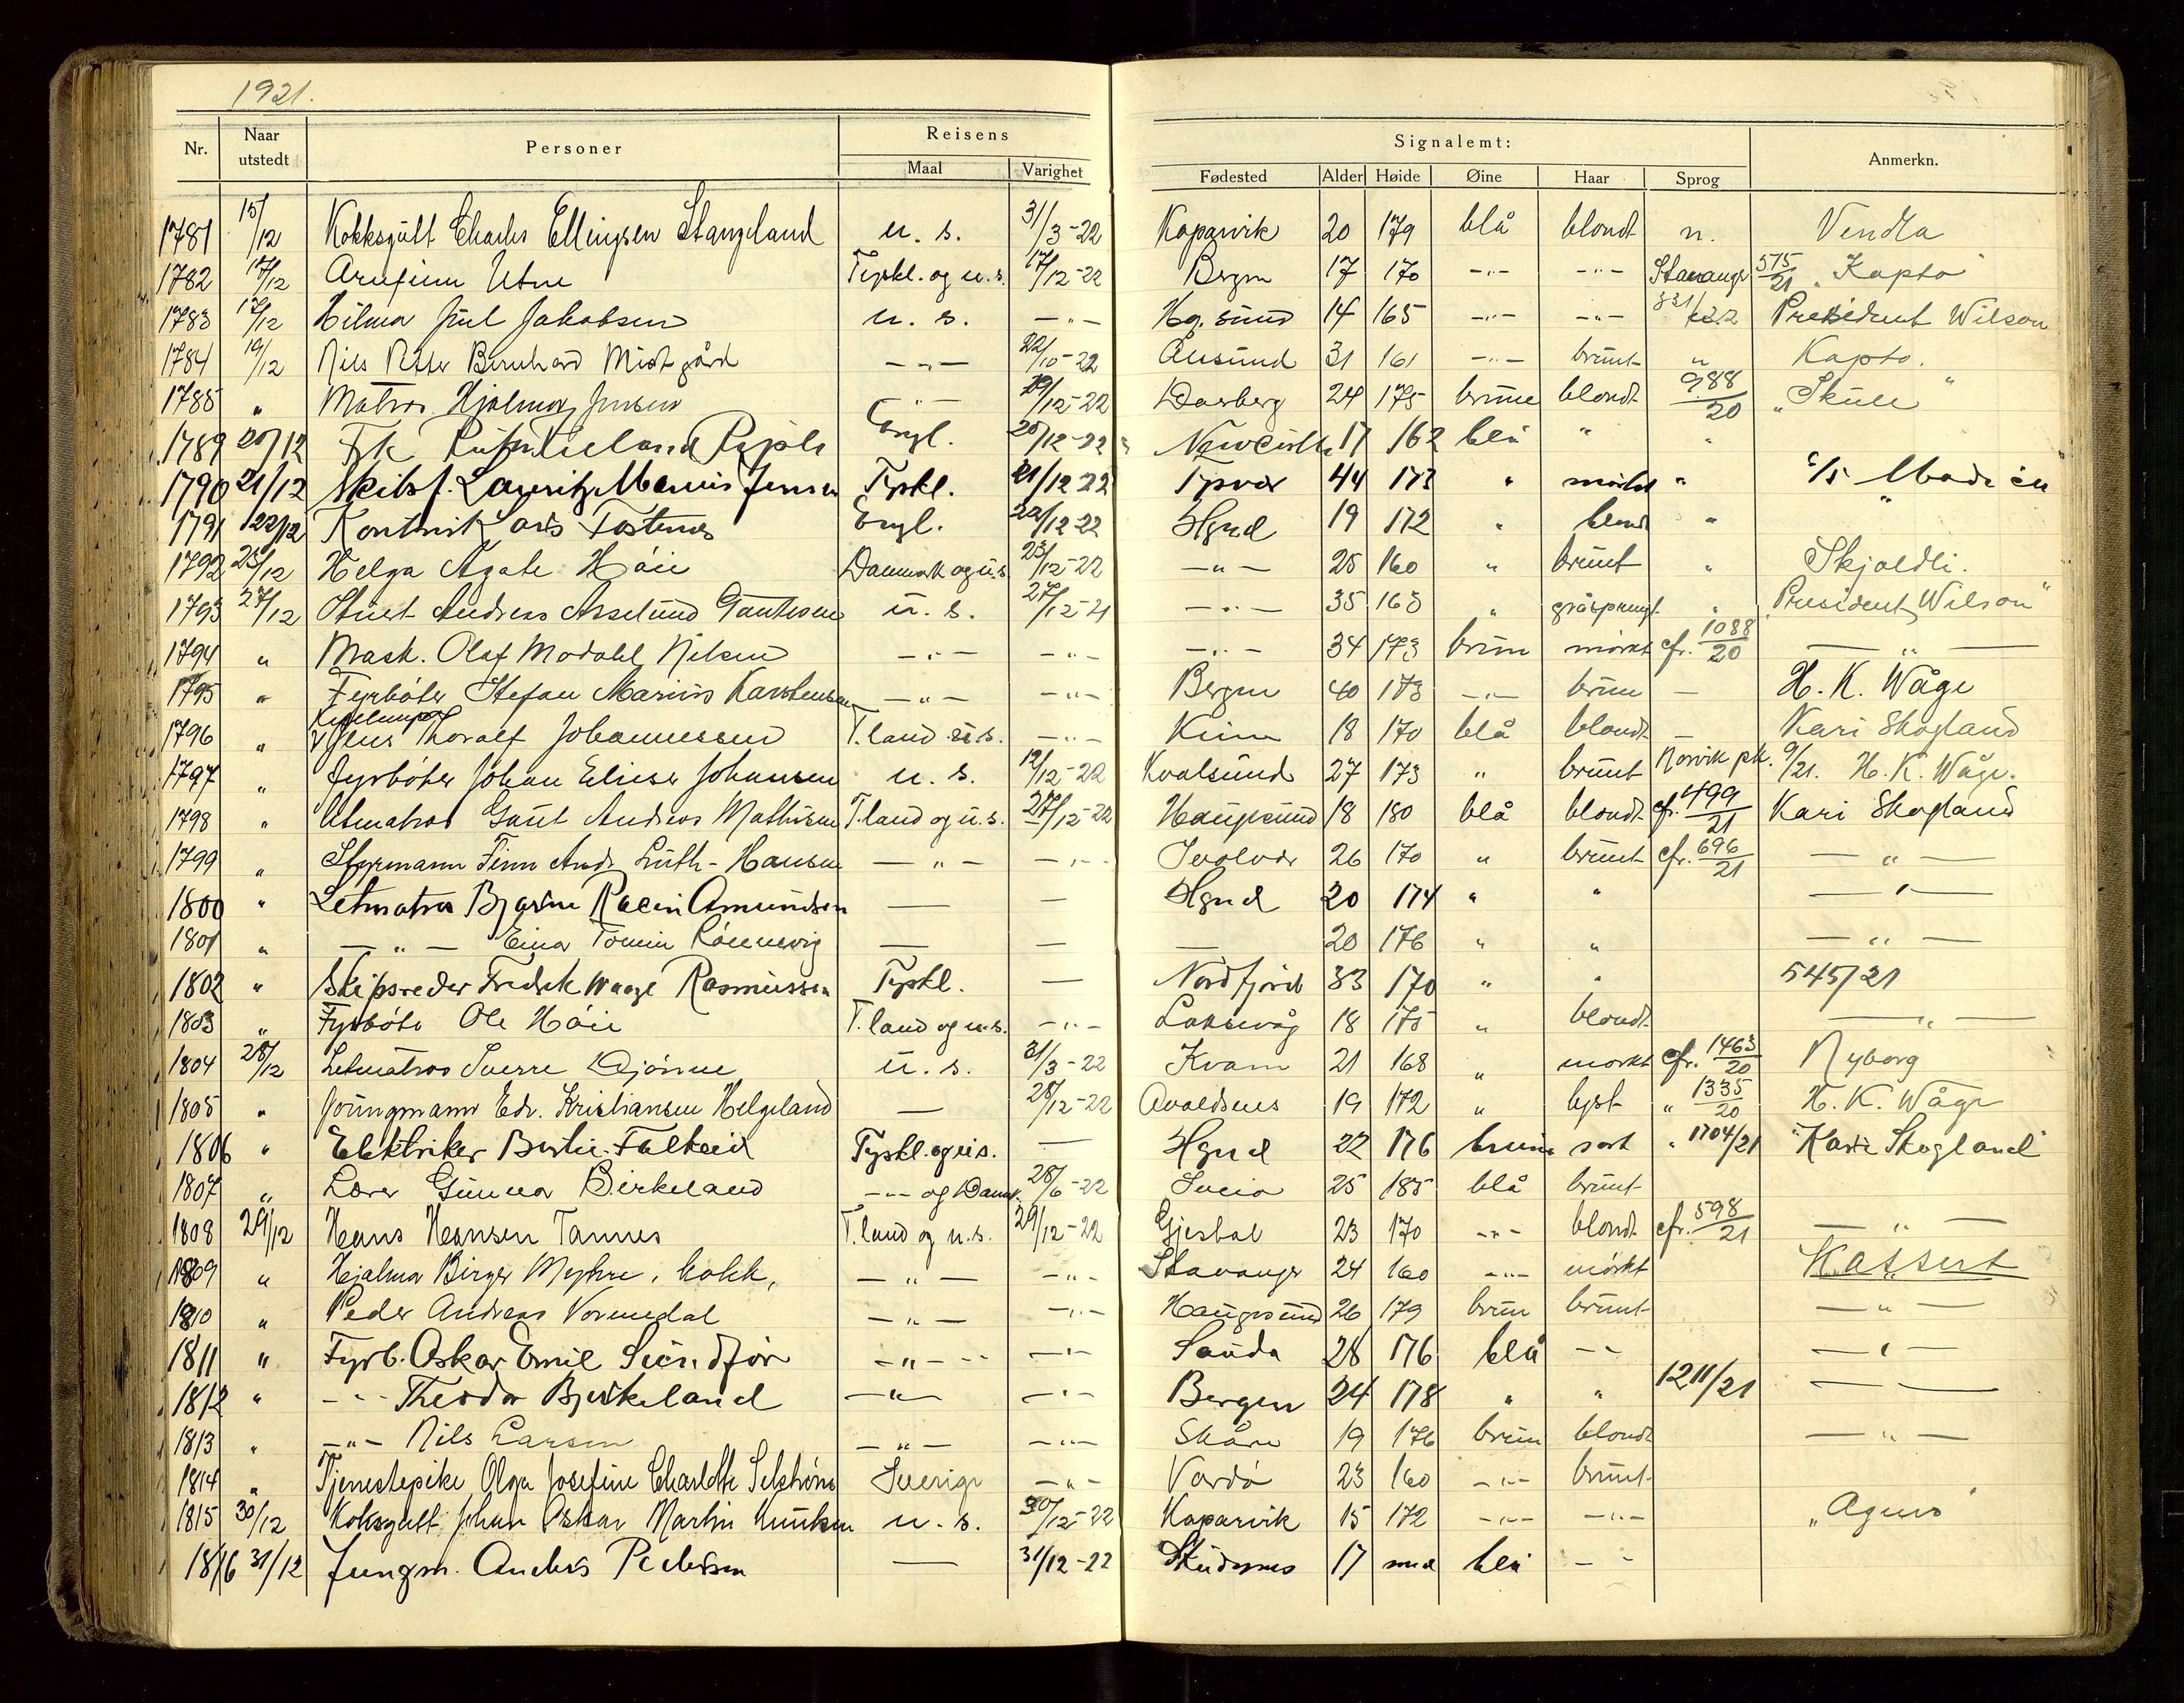 1921.
Nr. Naar utstedt Personer Reisens Maal Varighet Signalemt: Fødested Alder Høide Øine Haar Sprog Anmerkn.
1781 15/12 Kokksgutt Charles Ellingsen Stangeland u. s. 31/3-22 Kopervik 20 179 blå blondt n. Vendla
1782 /12 Arnfinn Utne Tyskl. og u. s. 17/12-22 Bergen 17 170 -"- -"- Stavanger 575/21 "Kapto"
1783 17/12 Hilmar Juul Jakobsen u. s. -"- Hg.sund 14 165 -"- -"- President Wilson
1784 19/12 Nils Petter Bernhard Mistgård -"- 22/10-22 Ålesund 31 161 -"- brunt " Kapto.
1785 " Matros Hjalmar Jensen -"- 29/12-22 24 175 brune blondt 988/20 "Skule"
1789 20/12 Frk Engl. 20/12-22 17 162 blå " "
1790 21/12 Skibsf. Lauritz Marius Jensen Tyskl. 21/12 22 Tysvær 44 173 " mørkt "
1791 22/12 Kontorist Lars Fosternes Engl. 22/12-22 Hgsd 19 172 " blond "
1792 23/12 Helga Agate Høie Danmark og u.s. 23/12-22 -"- 25 160 " brunt " Skjoldli.
1793 27/12 Stuert Andreas Asselund Gautesen u. s. 27/12-21 -"- 35 163 " gråsprengt " "President Wilson"
1794 " Mask. Olaf Modahl Nilsen -"- -"- -"- 34 173 brun mørkt cfr. 1088/20 -"-
1795 " Fyrbøter Stefan Marius Karstensen -"- -"- Bergen 40 173 -"- brun - H. K. Wåge
1796 " Jens Thoralf Johannessen T.land u.s. -"- Kinn 18 170 blå blondt - Kari Skogland
1797 " Fyrbøter Johan Elieser Johansen u. s. 12/12-22 Kvalsund 27 173 " brunt Narvik pk. 9/21. H. K. Wåge.
1798 " Letmatros Gaut Andreas Mathisen T.land og u.s. 27/12-22 Haugesund 18 180 blå blondt cfr. 499/21 Kari Skogland
1799 " Styrmann Finn Andr. Luth-Hansen -"- -"- Svolvær 26 170 " brunt cfr. 696/21 -"-
1800 " Letmatros Bjarne Amundsen — — Hgsd 20 174 " " -"-
1801 " -"- Einar Rønnevig — — — 20 176 " " -"-
1802 " Skipsreder Fredrik Waage Rasmussen Tyskl. — Nordfjord 33 170 " " 545/21
1803 " Fyrbøter Ole Høie T.land og u.s. -"- Laksevåg 18 175 " blondt -"-
1804 28/12 Letmatros Sverre Djønne u. s. 31/3-22 Kvam 21 168 " mørkt cfr. 1463/20 Nyborg
1805 " Joungmann Edv. Kristiansen Helgeland — 28/12-22 Avaldsnes 19 172 " lyst " 1335/20 H. K. Wåge
1806 " Elektriker Falkeid Tyskl. og u.s. — Hgsd 22 176 brune sort " 1704/21 "Kari Skogland"
1807 " Lærer Gunnar Birkeland -"- og Danm. 28/6-22 25 185 blå brunt
1808 29/12 Hans Hansen Tannes T.land og u.s. 29/12-22 23 170 -"- blondt cfr. 598/21 -"-
1809 " Hjalmar Birger Myhre, kokk, -"- -"- Stavanger 24 160 -"- mørkt Kassert
1810 " Peder Andreas Vormedal -"- -"- Haugesund 26 179 brun brunt -"-
1811 " Fyrb. Oskar Emil -"- -"- Sauda 28 176 blå -"- -"-
1812 " -"- Theodor Bjerkeland -"- -"- Bergen 24 178 " " 1211/21 -"-
1813 " -"- Nils Larsen -"- -"- Skåre 19 176 brun blondt -"-
1814 " Tjenestepike Olga Josefine Charlotte Sverige -"- Vardø 23 160 -"- brunt
1815 30/12 Koksgutt Johan Oskar Martin Knutsen u. s. 30/12-22 Kopervik 15 172 -"- -"- "Agnes"
1816 31/12 Jungm. Anders Pedersen — 31/12-22 Skudesnes 17 blå -"-